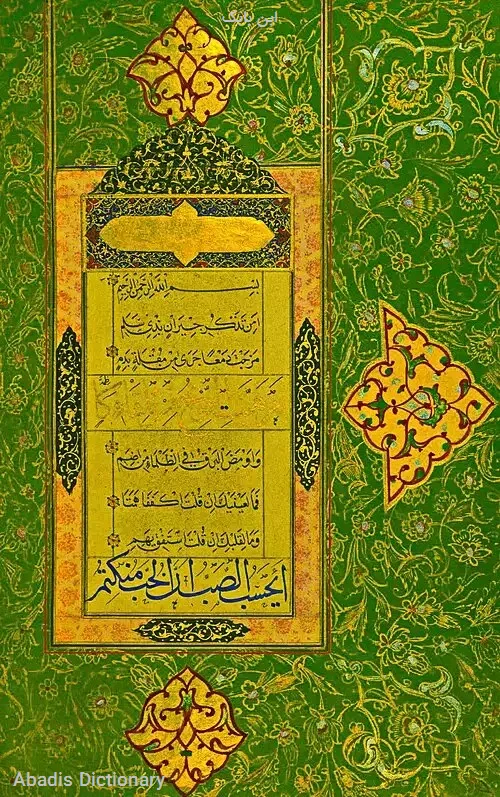 بسم الله الرحمن الرحيم
امن تذكر جيران بذي سلم
مزجت دمعا جرى من مقلة بدم
واومض البرق في الظلماء من اضم
فما لعينيك ان قلت اكففا همتا
وما لقلبك ان قلت استفق يهم
ايحسب الصب ان الحب منكتم
Abadis Dictionary